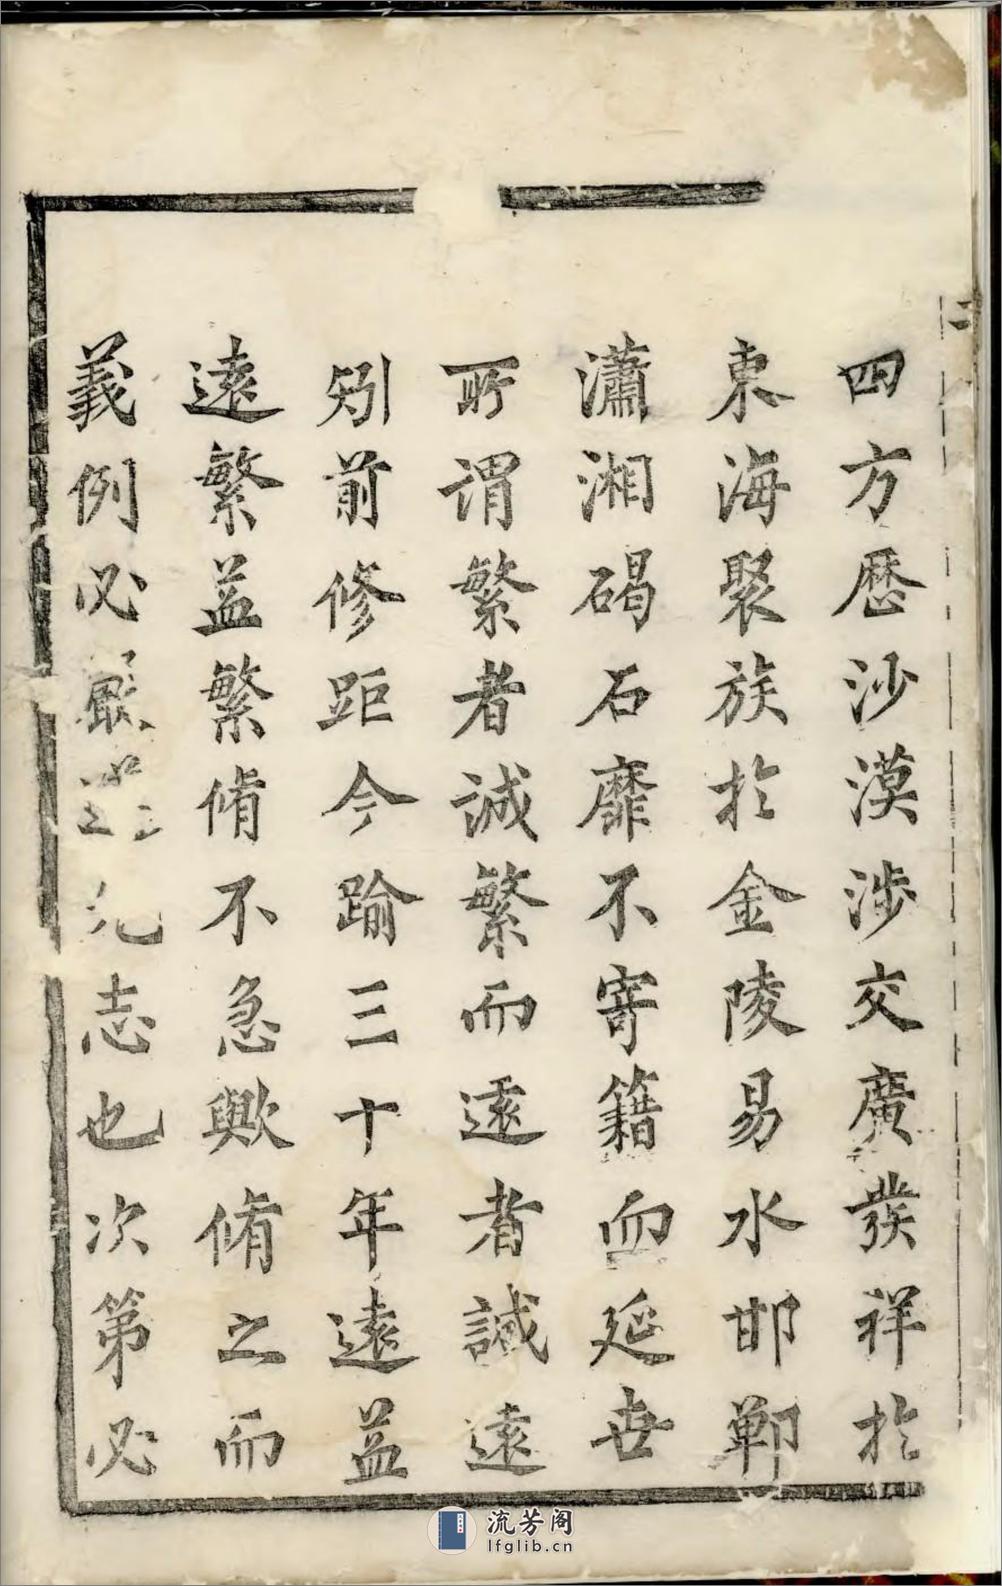 四方歷沙漠涉交廣發祥於
東海聚族於金陵易水邯鄲
瀟湘碣石靡不寄籍而延世
所謂繁者誠繁而遠者誠遠
矧前修距今踰三十年遠益
遠繁益繁脩不急歟脩之而
義例必嚴志也次第必
流芳阁
lfglib.cn